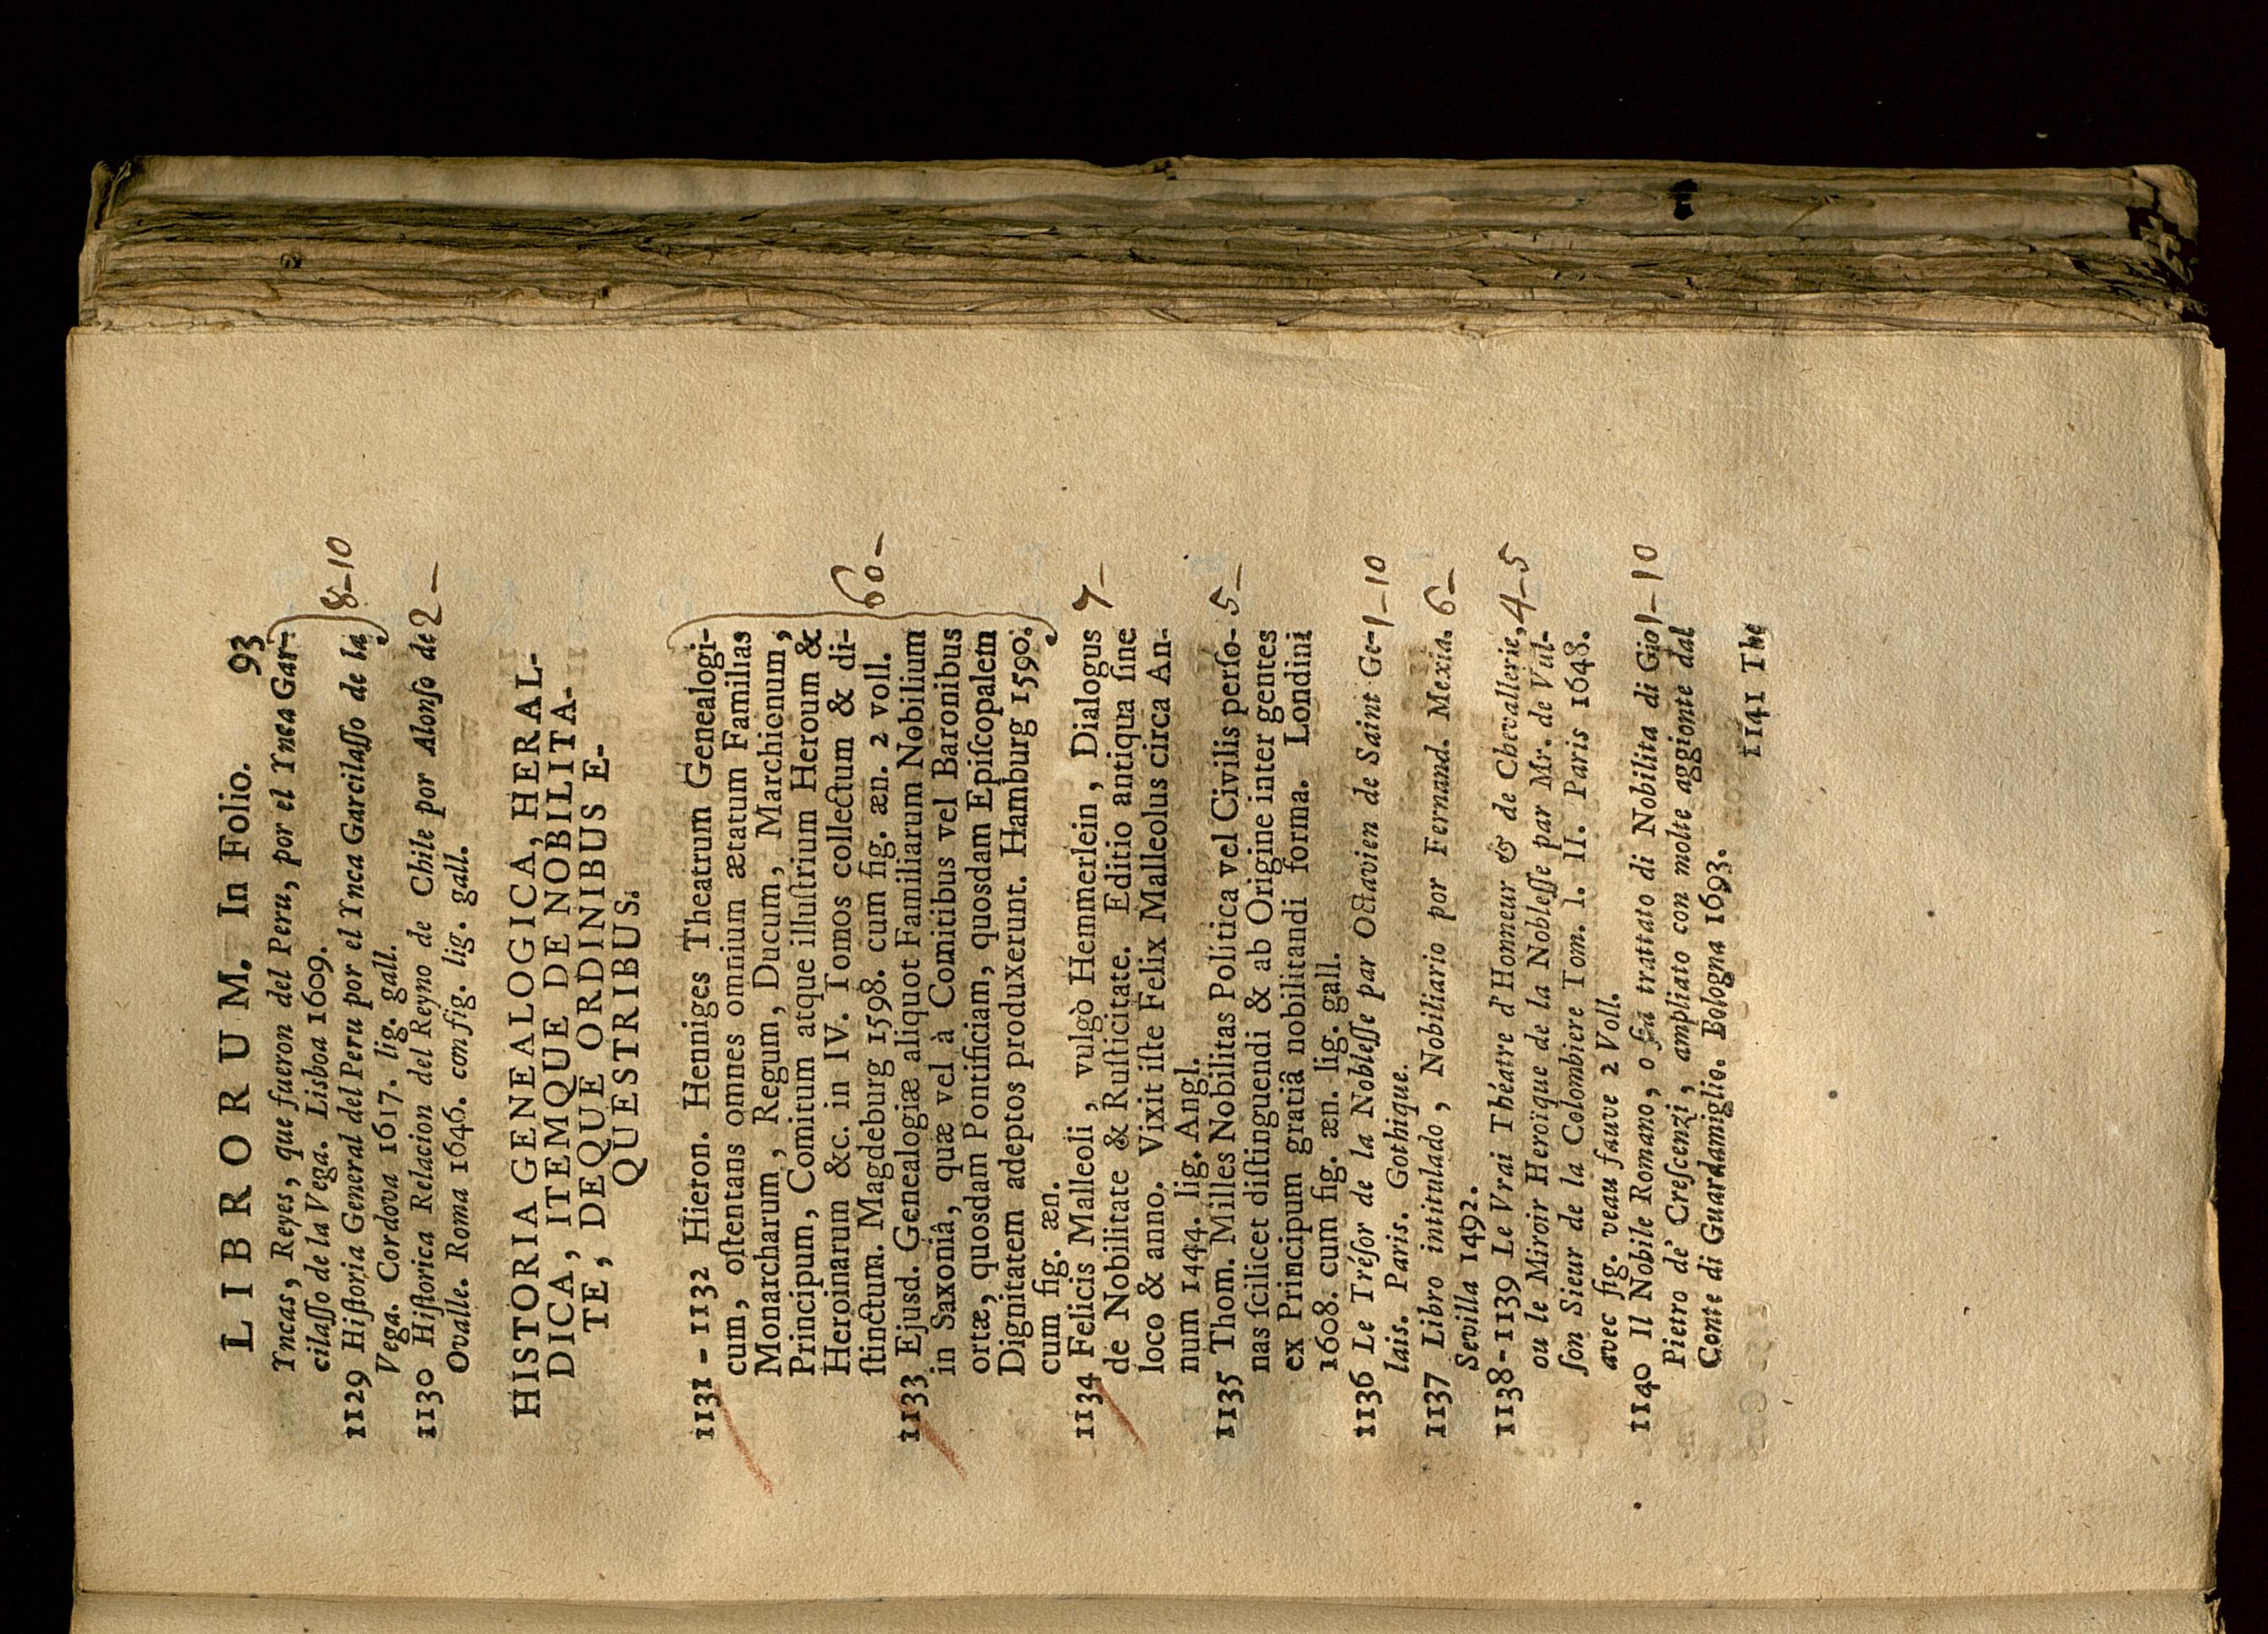 LIBRORUM. In Folio. 93
Yncas, Reyes, que fueron del Peru, por el Ynca Gar-
cilaſſo de la Vega. Lisboa 1609.
1129 Hiſtoria General del Peru por el Ynca Garcilaſſo de la 8-10
Vega. Cordova 1617. lig. gall.
1130 Hiſtorica Relacion del Reyno de Chile por Alonſo de 2 -
Ovalle. Roma 1646. con fig. lig. gall.
HISTORIA GENEALOGICA, HERAL-
DICA, ITEMQUE DE NOBILITA-
TE, DEQUE ORDINIBUS E-
QUESTRIBUS.
1131 - 1132 Hieron. Henniges Theatrum Genealogi-
cum, oſtentans omnes omnium ætatum Familias
Monarcharum, Regum, Ducum, Marchionum,
Principum, Comitum atque illuſtrium Heroum &
Heroinarum &c. in IV. Tomos collectum & di- 60 -
ſtinctum. Magdeburg 1598. cum fig. æn. 2 voll.
1133 Ejusd. Genealogiæ aliquot Familiarum Nobilium
in Saxoniâ, quæ vel à Comitibus vel Baronibus
ortæ, quosdam Pontificiam, quosdam Epiſcopalem
Dignitatem adeptos produxerunt. Hamburg 1590.
cum fig. æn.
1134 Felicis Malleoli, vulgò Hemmerlein, Dialogus 7 -
de Nobilitate & Ruſticitate. Editio antiqua ſine
loco & anno. Vixit iſte Felix Malleolus circa An-
num 1444. lig. Angl.
1135 Thom. Milles Nobilitas Politica vel Civilis perſo- 5 -
nas ſcilicet diſtinguendi & ab Origine inter gentes
ex Principum gratiâ nobilitandi forma. Londini
1608. cum fig. æn. lig. gall.
1136 Le Tréſor de la Nobleſſe par Octavien de Saint Ge- 1-10
lais. Paris. Gothique.
1137 Libro intitulado, Nobiliario por Fernand. Mexia. 6 -
Sevilla 1492.
1138 - 1139 Le Vrai Théatre d'Honneur & de Chevallerie, 4-5
ou le Miroir Heroïque de la Nobleſſe par Mr. de Vul-
ſon Sieur de la Colombiere Tom. I. II. Paris 1648.
avec fig. veau fauve 2 Voll.
1140 Il Nobile Romano, o ſia trattato di Nobilita di Gio 1-10
Pietro de' Creſcenzi, ampliato con molte aggionte dal
Conte di Guardamiglio. Bologna 1693.
1141 The